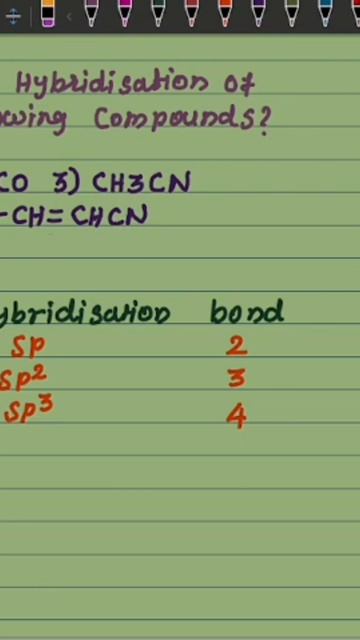 Hybridisation of
wing Compounds?
CO 3) CH3CN
-CH=CHCN
ybridisation bond
sp 2
sp2 3
sp3 4